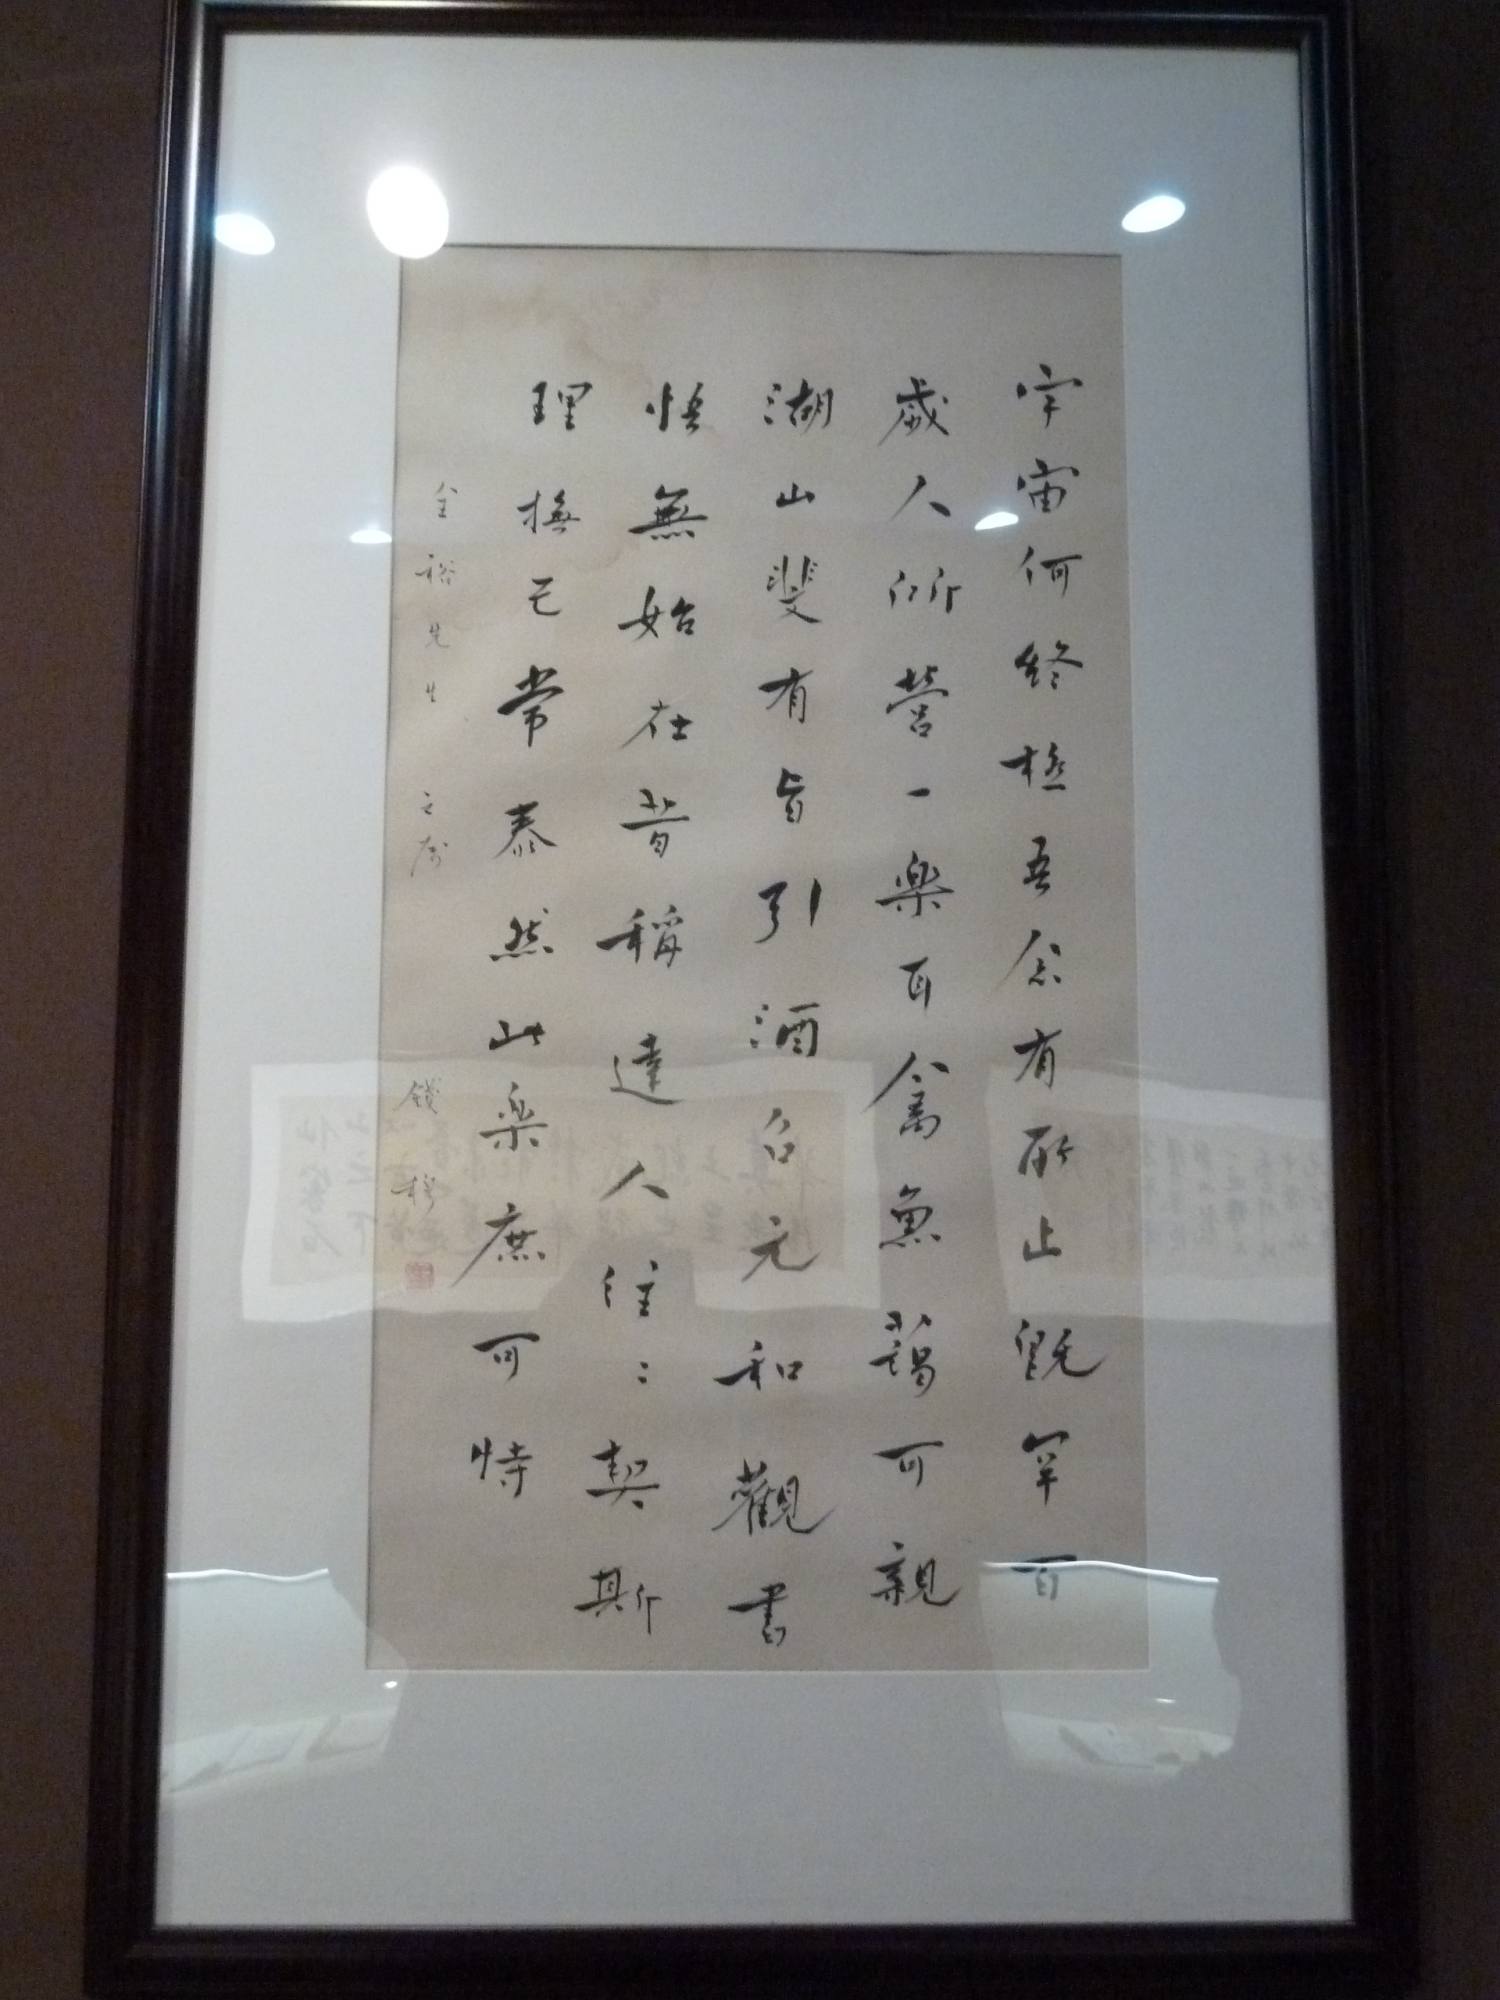 宇宙何終極吾念有所止既罕百
歲人所營一樂耳禽魚藹可親
湖山斐有旨引酒召元和觀書
悟無始在昔稱達人往〻契斯
理撫己常泰然此樂庶可恃
金裕先生 之屬
錢穆